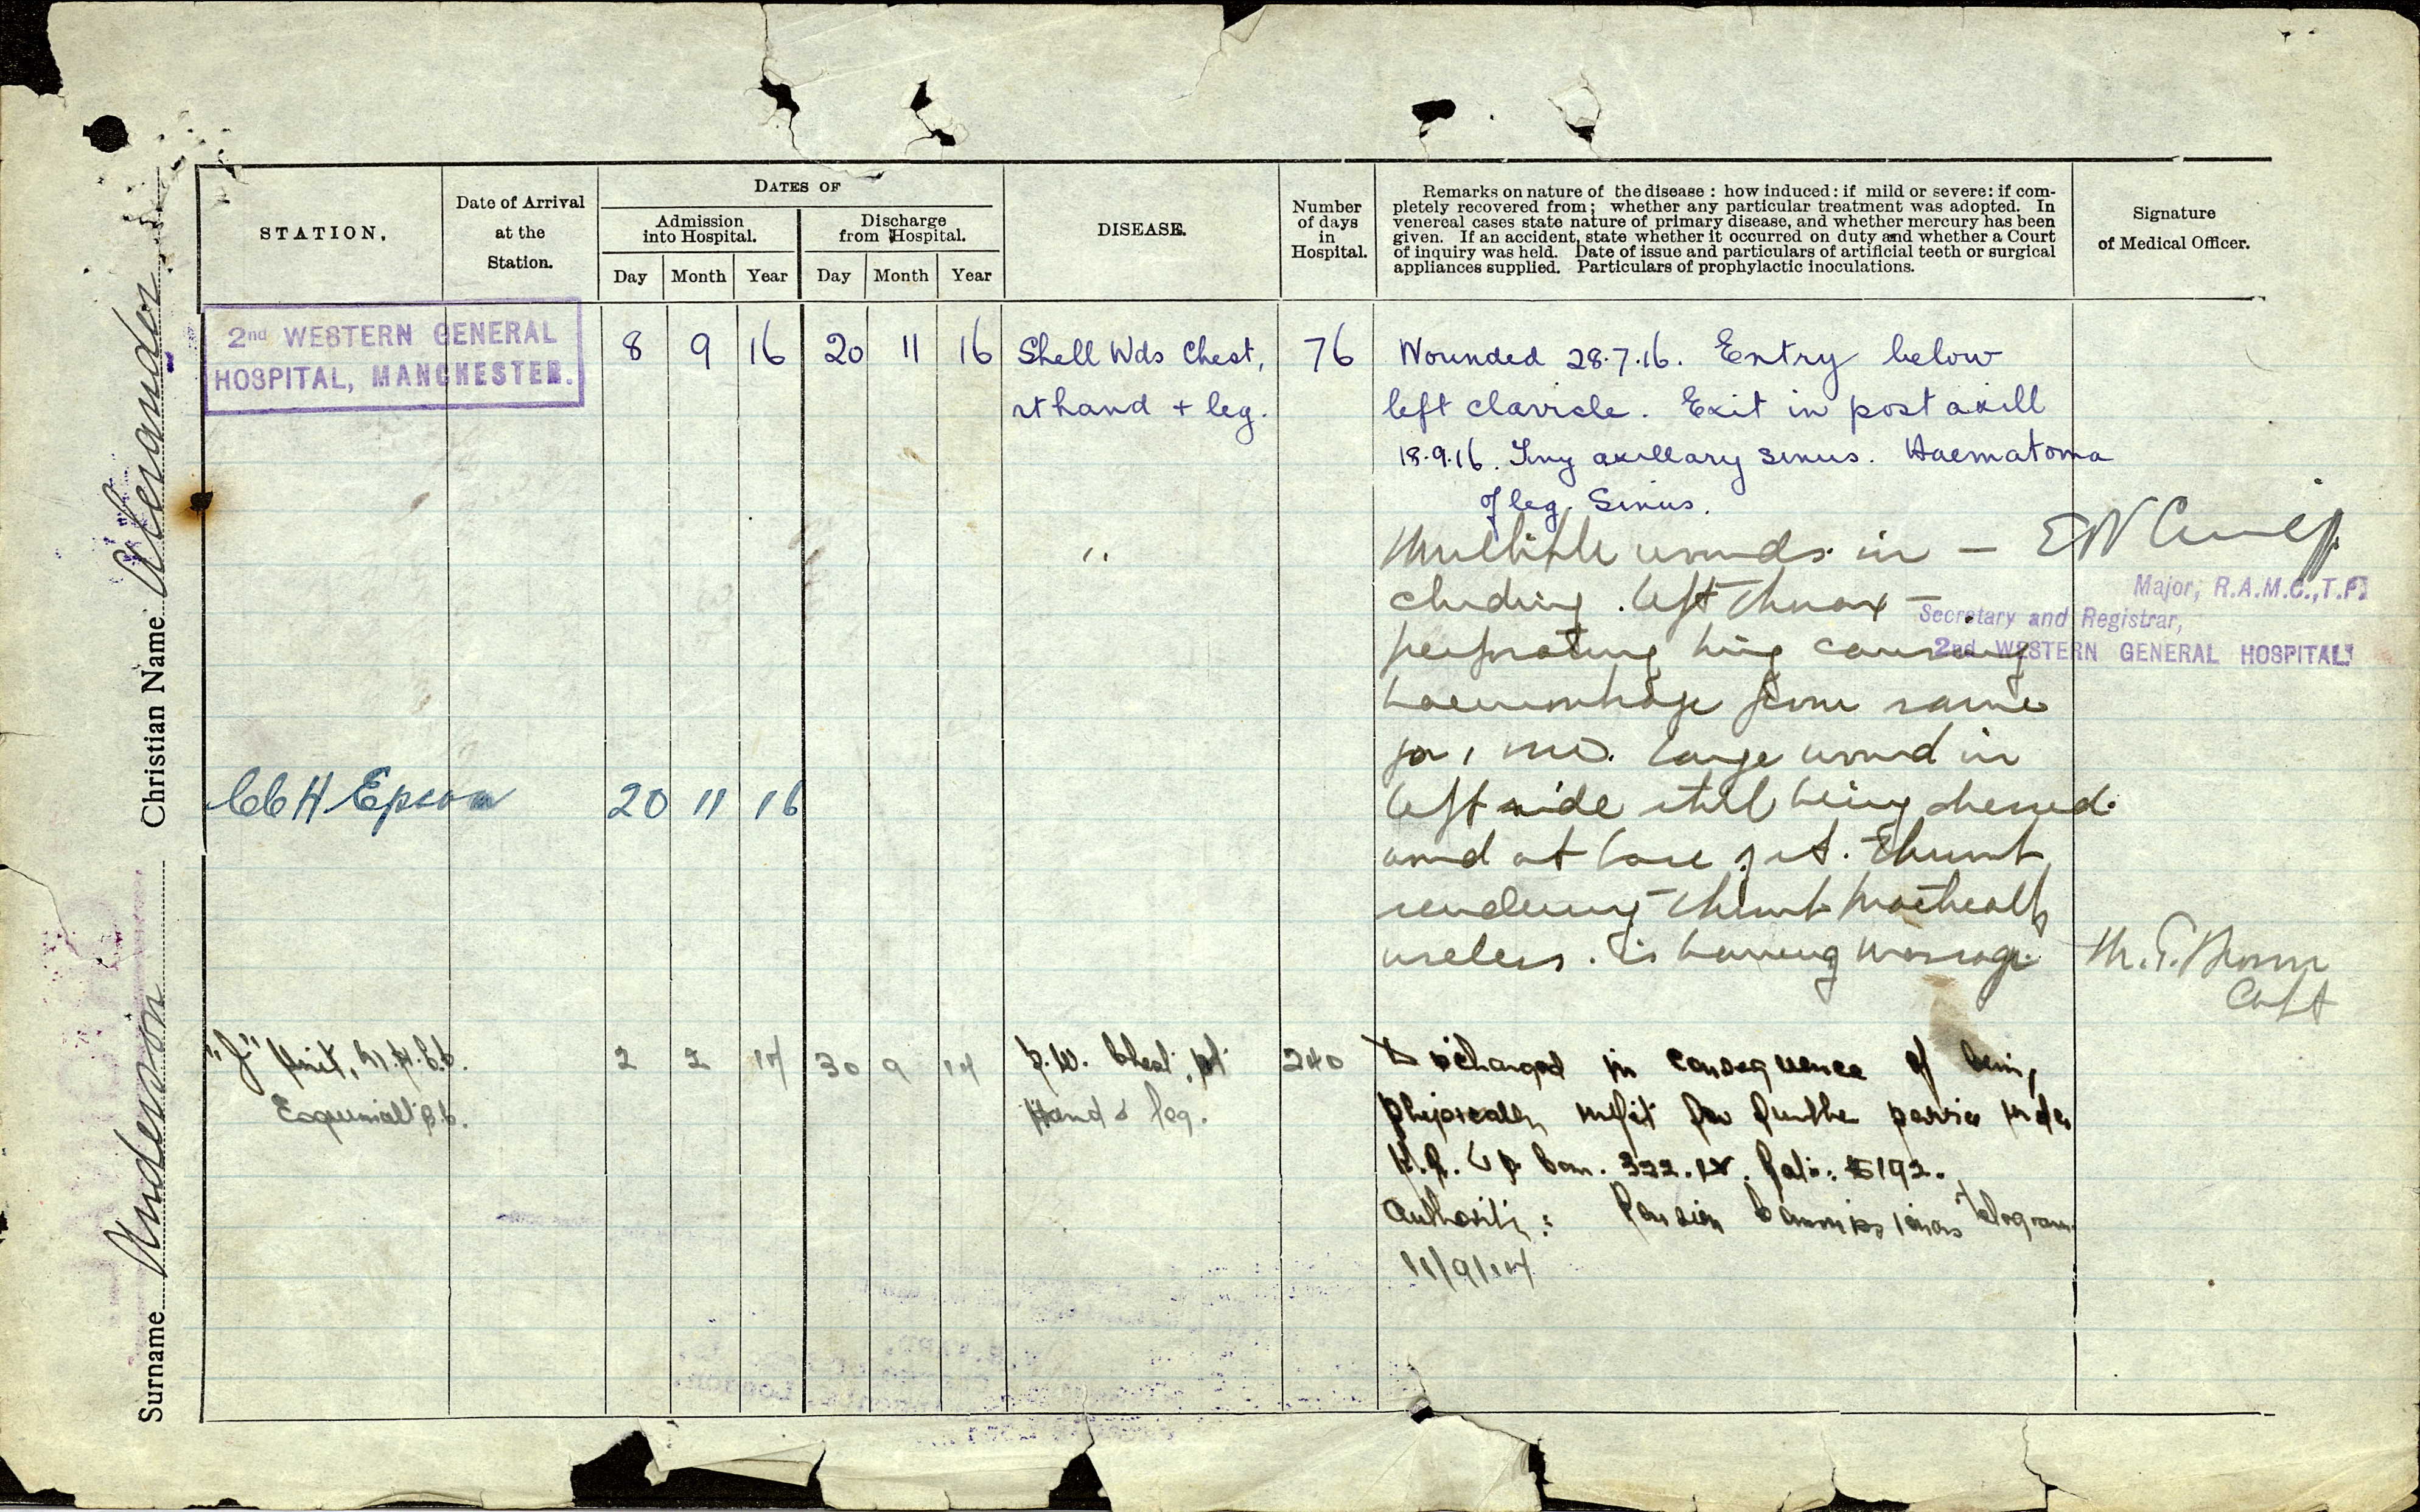 Surname Anderson Christian Name Alexander
STATION.
Date of Arrival
at the
Station.
DATES OF
Admission
into Hospital.
Discharge
from Hospital.
Day Month Year Day Month Year
DISEASE.
Number
of days
in
Hospital.
Remarks on nature of the disease : how induced : if mild or severe : if com-
pletely recovered from ; whether any particular treatment was adopted. In
venereal cases state nature of primary disease, and whether mercury has been
given. If an accident, state whether it occurred on duty and whether a Court
of inquiry was held. Date of issue and particulars of artificial teeth or surgical
appliances supplied. Particulars of prophylactic inoculations.
Signature
of Medical Officer.
2nd WESTERN GENERAL
HOSPITAL, MANCHESTER.
8 9 16 20 11 16 Shell Wds Chest, 76 Wounded 28.7.16. Entry below
rt hand + leg. left clavicle. Exit in post axill
18.9.16. Tiny axillary sinus. Haematoma
of leg. Sinus.
" Multiple wounds in -
cluding left Thorax -
Major, R.A.M.C., T.F.
Secretary and Registrar,
2nd WESTERN GENERAL HOSPITAL.
perforating lung causing
haemorrhage from same
for 1 mo. Large wound in
CCH Epsom 20 11 16 left side still being dressed.
and at base of rt. thumb
rendering thumb practically
useless. Is having massage
Capt
"J" Unit, M.H.C.C. 2 2 17 30 9 17 S.W. Chest, rt 240 Discharged in consequence of being
Esquimalt B.C. Hand & leg. physically unfit for further service under
K.R. & O. Can. 322. IX.
Authority: Pension Commissioners Telegram
11/9/17